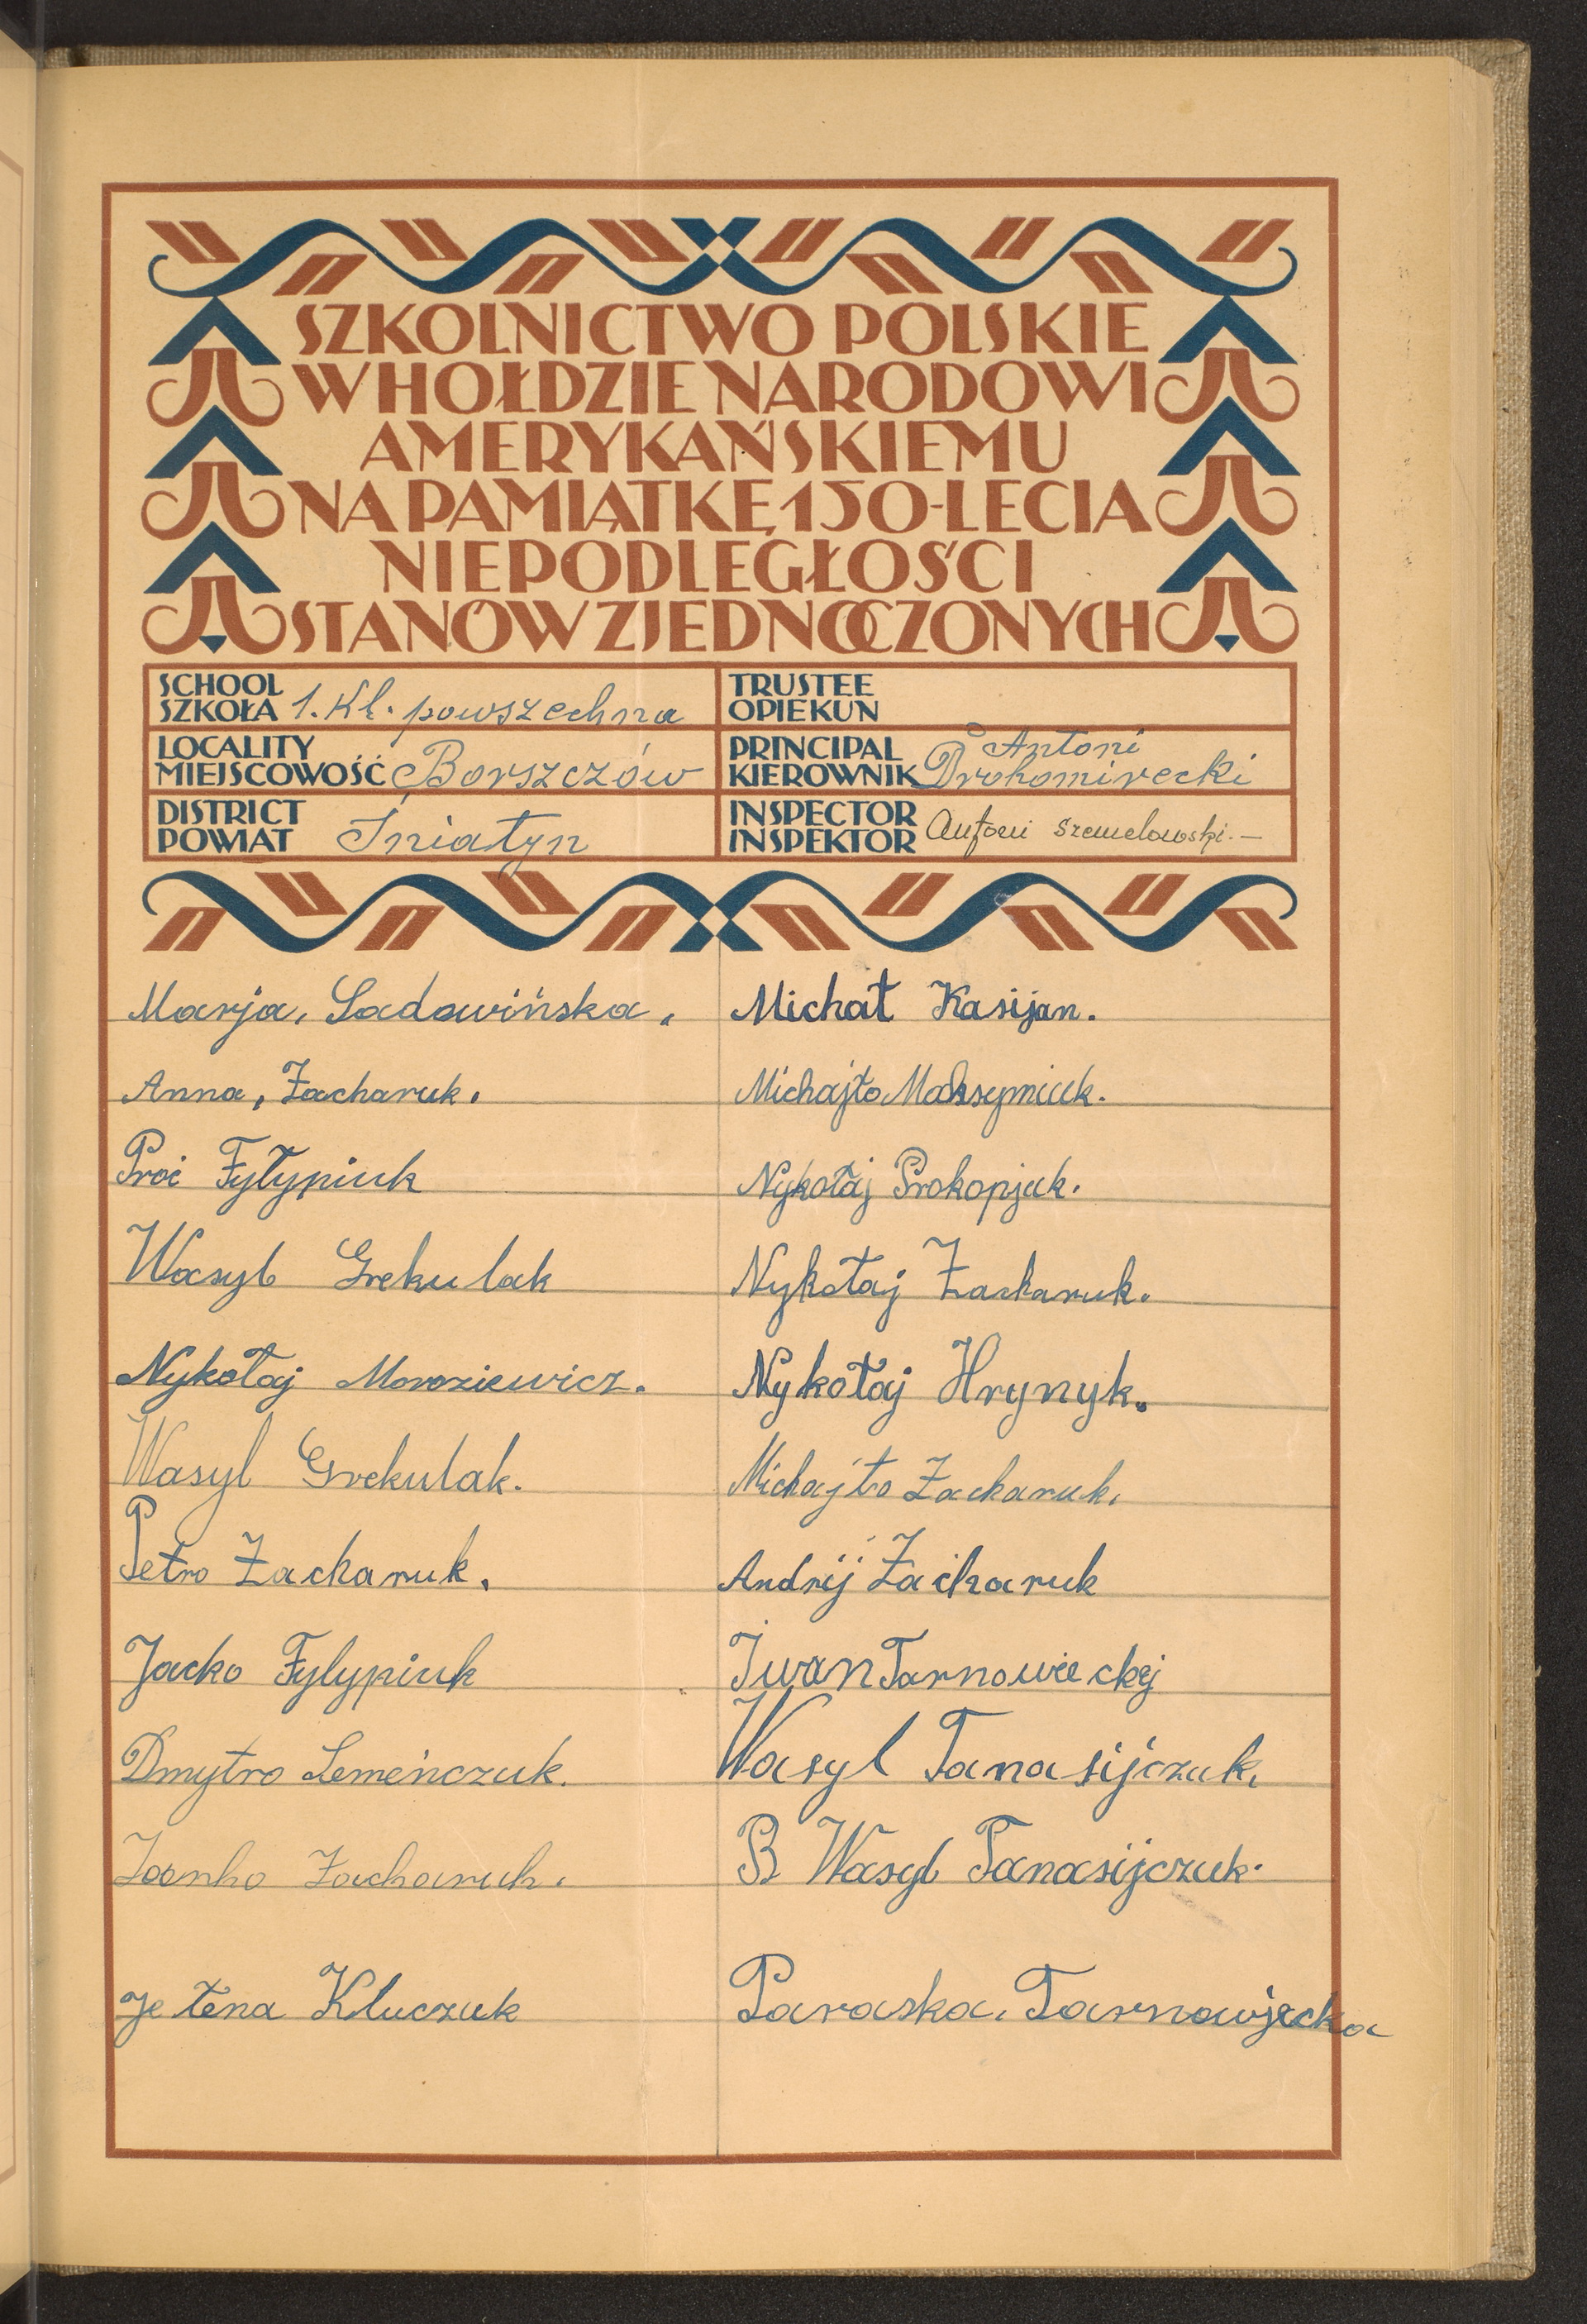 SZKOLNICTWO POLSKIE
W HOŁDZIE NARODOWI
AMERYKAŃSKIEMU
NA PAMIĄTKĘ 150-LECIA
NIEPODLEGŁOŚCI
STANÓW ZJEDNOCZONYCH
SCHOOL
SZKOŁA 1. Kl. powszechna
LOCALITY
MIEJSCOWOŚĆ Borszczów
DISTRICT
POWIAT Śniatyn
TRUSTEE
OPIEKUN
PRINCIPAL
KIEROWNIK Antoni
Drohomirecki
INSPECTOR
INSPEKTOR Antoni Szemelowski.—
Marja, Sadowińska.
Anna, Zacharuk.
Proć Fyłypiuk
Wasyl Grekulak
Nykołaj Moroziewicz.
Wasyl Grekulak.
Petro Zacharuk.
Jacko Fylypiuk
Dmytro Semeńczuk.
Zacharuk.
Jełena Kluczuk
Michał Kasijan.
Michajło Maksymiuk.
Nykołaj Prokopjuk.
Nykołaj Zacharuk.
Nykołaj Hrynyk.
Michajło Zacharuk.
Andrij Zacharuk
Iwan Tarnowieckij
Wasyl Tanasijczuk.
B Wasyl Tanasijczuk.
Paraska. Tarnowjecka